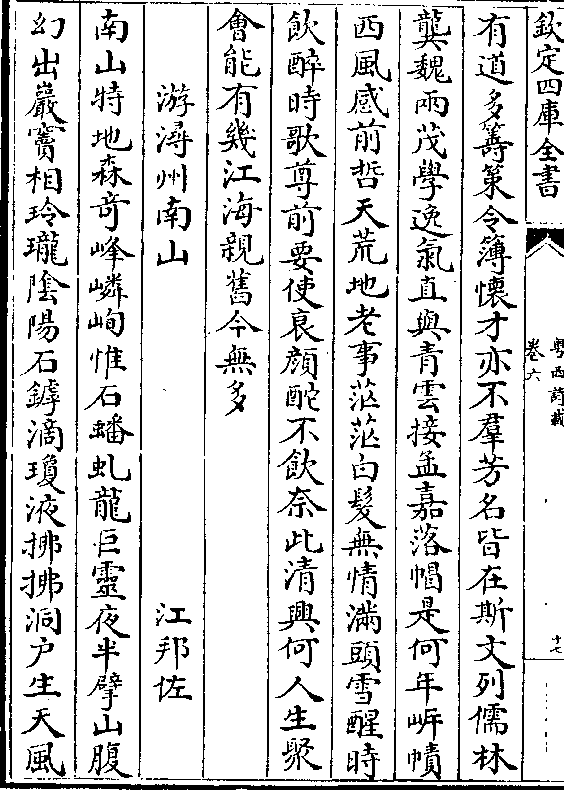 欽定四庫全書
粵西詩載
卷六
十七
有道多籌策令簿懷才亦不羣芳名皆在斯文列儒林
龔魏兩茂學逸氣直與青雲接孟嘉落帽是何年岸幘
西風感前哲天荒地老事茫茫白髮無情滿頭雪醒時
飲醉時歌尊前要使衰顔酡不飲奈此清興何人生聚
會能有幾江海親舊今無多
游潯州南山
江邦佐
南山特地森奇峰嶙峋惟石蟠虬龍巨靈夜半擘山腹
幻出巖竇相玲瓏陰陽石罅滴瓊液拂拂洞户生天風